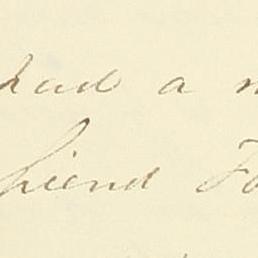 had a
friend